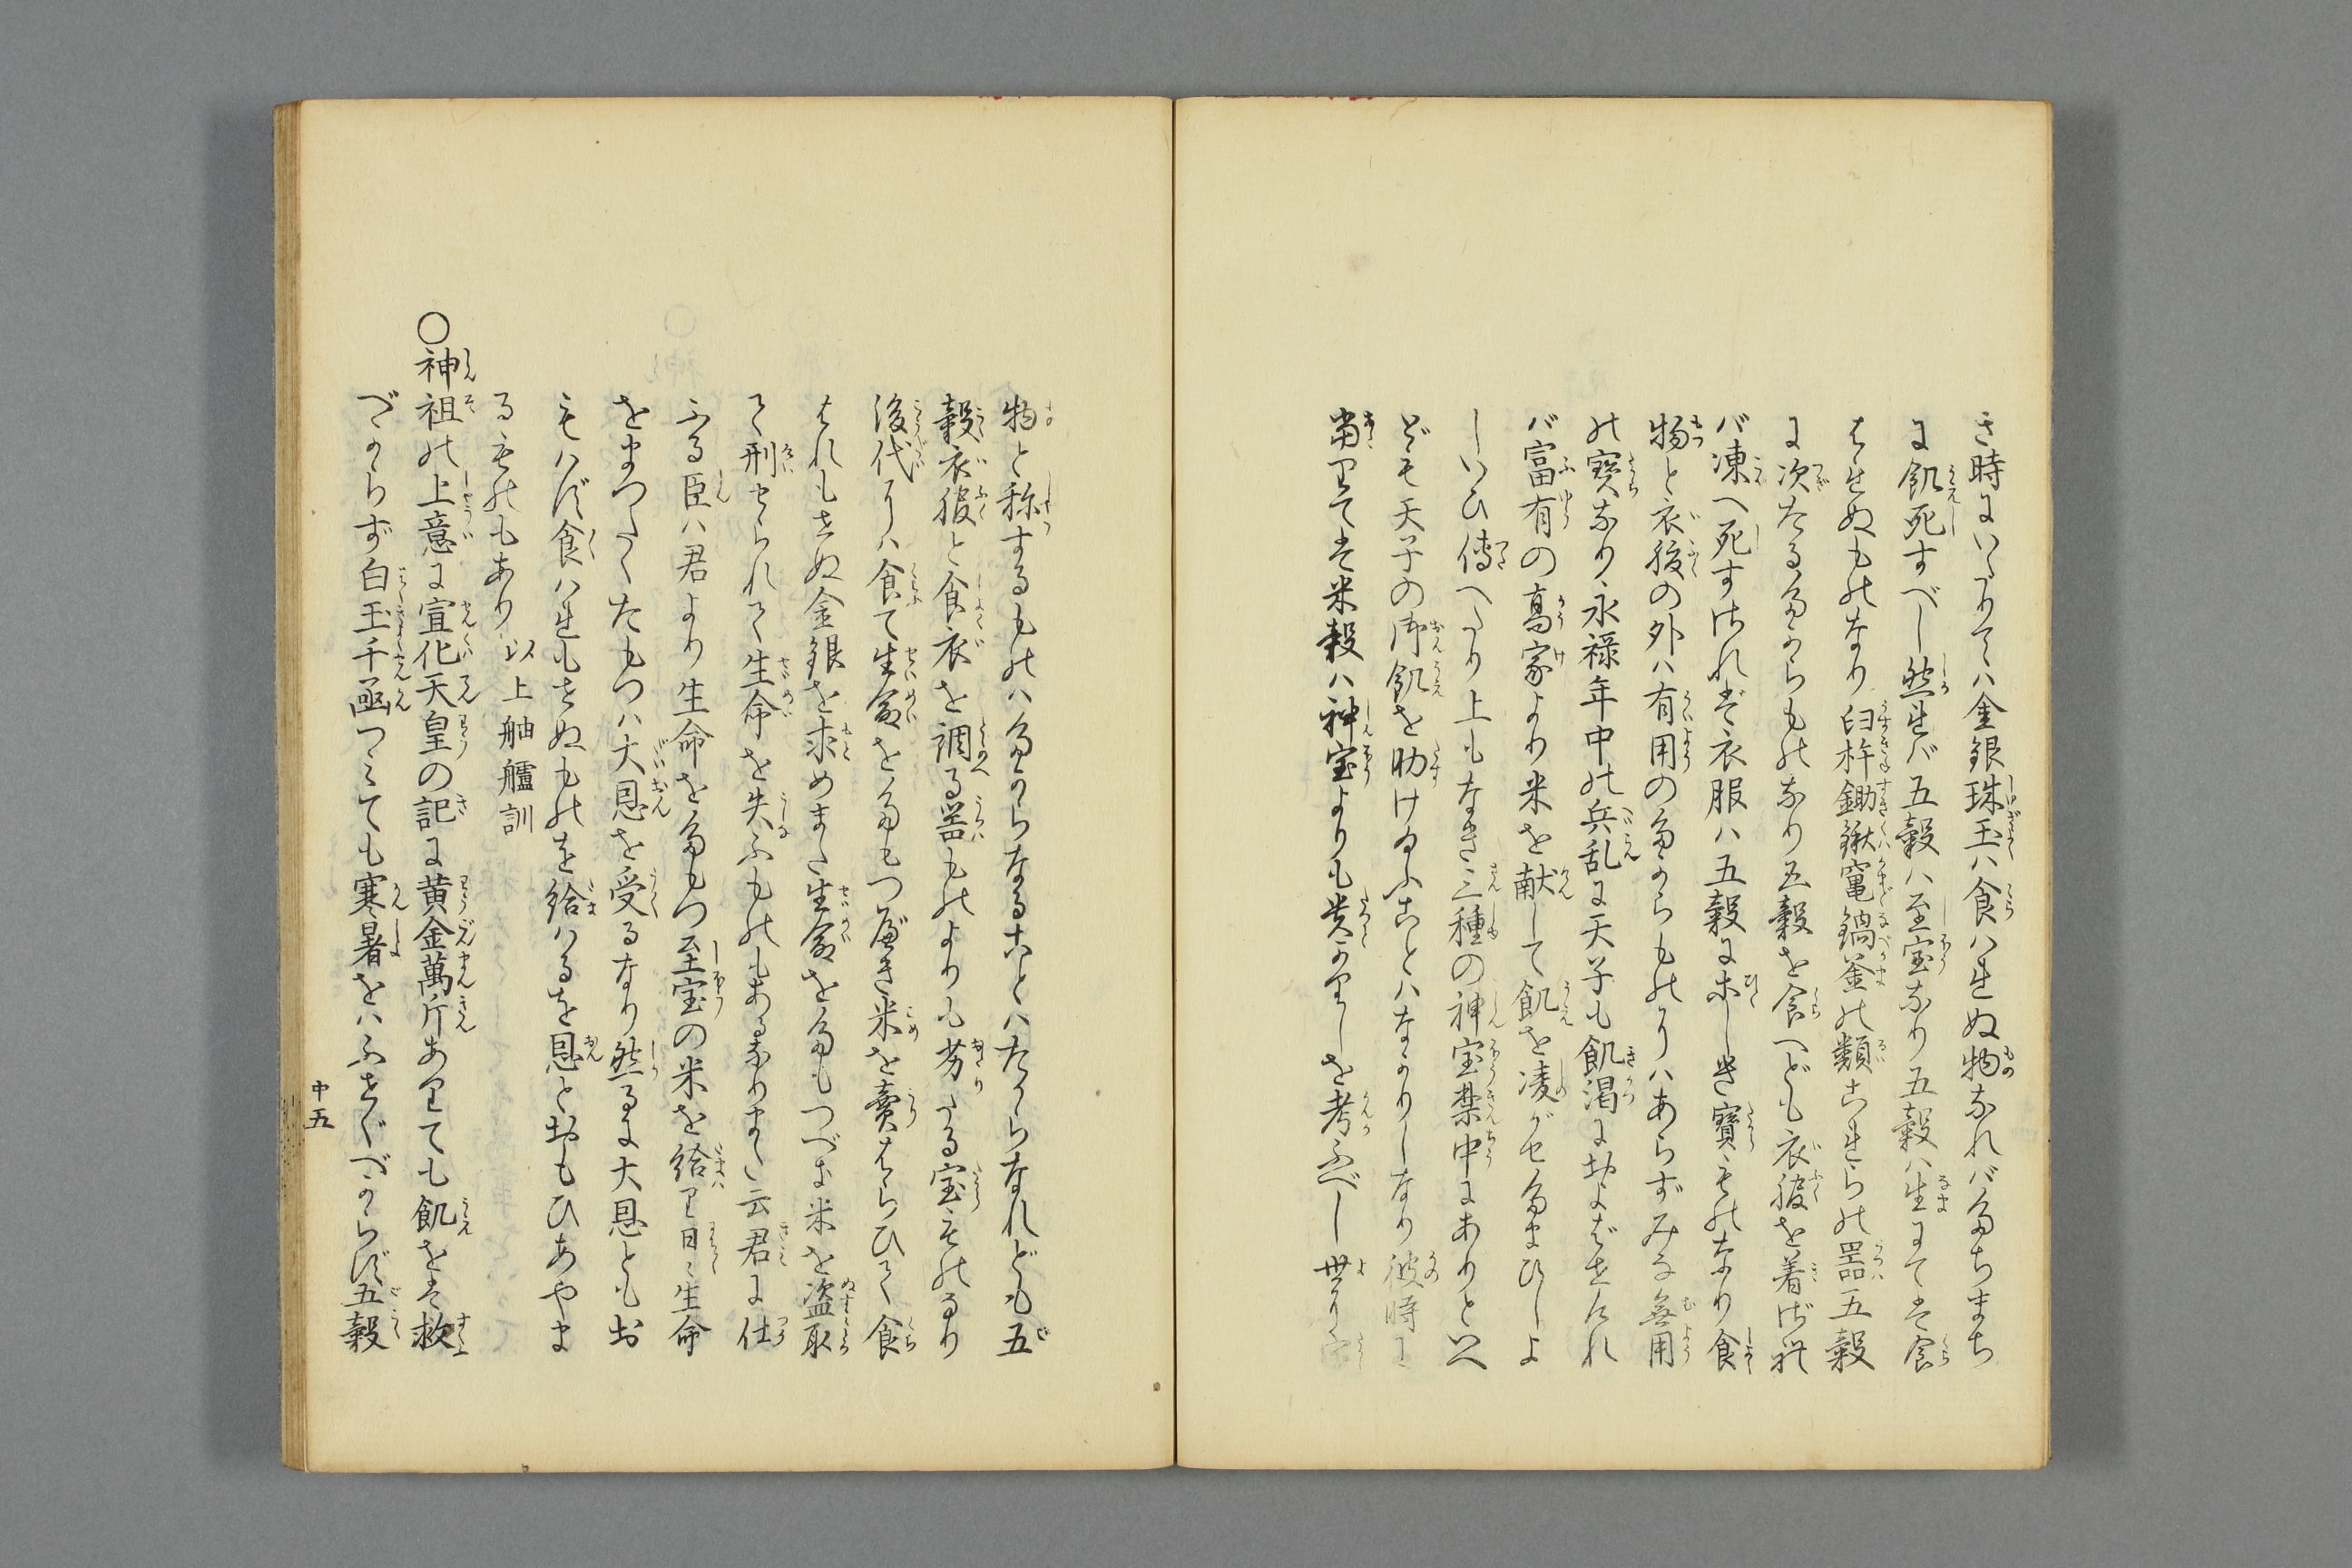 き時にいたりてハ金銀珠玉ハ食ハれぬ物なれバたちまち
に飢死すべし然れバ五穀ハ至宝なり五穀ハ生にてハ食
はれぬものなり臼杵鋤鍬竃鍋釜の類これらの器五穀
に次たるたからものなり五穀を食へども衣服を着ざれ
バ凍へ死すされバ衣服ハ五穀にひとしき寶ものなり食
物と衣服の外ハ有用のたからものにハあらずみな無用
の寶なり永禄年中の兵乱に天子も飢渇におよばせられ
バ富有の高家より米を献して飢を凌がせたまひしよ
しいひ傳へたり上もなき三種の神宝禁中にありといへ
ども天子の御飢を助けたふことハなかりしなり彼時に
當りてハ米穀ハ神宝よりも貴かりしを考ふべし世に宝
物と称するものハたからなることハたからなれども五
穀衣服と食衣を調る器ものよりも劣りたる宝ものなり
後代にハ食て生命をたもつべき米を賣はらひて食
はれもせぬ金銀を求めまた生命をたもつべき米を盗取
て刑せられて生命を失ふものもあるなりまた云君に仕
ふる臣ハ君より生命をたもつ至宝の米を給り日々生命
をまつたくたもつハ大恩を受るなり然るに大恩ともお
もハず食ハれもせぬものを給ハるを恩とおもひあやま
るものもあり 以上舳艫訓
〇神祖の上意に宣化天皇の記に黄金萬斤ありても飢をバ救
べからず白玉千凾つミても寒暑をハふせぐべからず五穀
中五